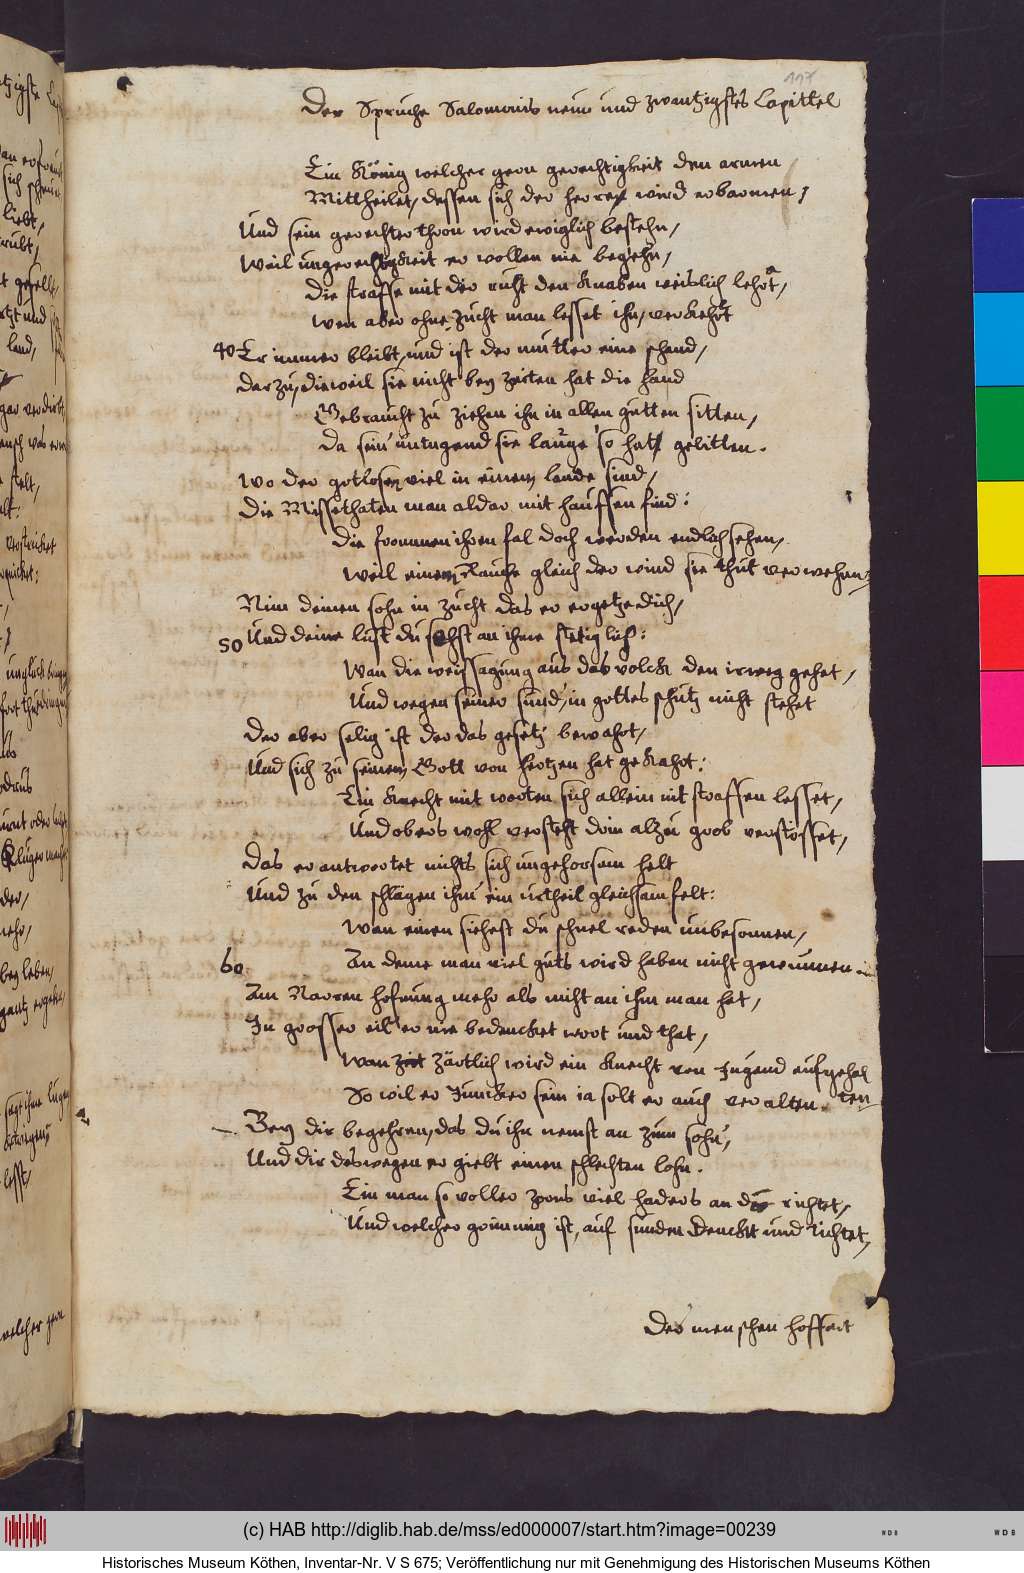 117
Der Spruche Salomonis neun und zwantzigstes Capittel
Ein König welcher gern gerechtigkeit den armen
Mittheilet, dessen sich der herre wird erbarmen,
Und sein gerechter thron wird ewiglich bestehn,
Weil ungerechtigkeit er wollen nie begehn,
Die straffe mit der rucht den knaben weislich lehrt,
Wen aber ohne zucht man lesset ihn, verkehrt
40 Er immer bleibt, und ist der mutter eine schand,
darzu, dieweil sie nicht bey zeiten hat die hand
Gebraucht zu ziehen ihn in allen gutten sitten,
Da sein untugend sie lange so hat gelitten.
Wo der gotlosen viel in einem lande sind,
Die Missethaten man aldar mit hauffen find:
Die frommen ihren fal doch werden endlich sehen,
Weil einem rauche gleich der wind sie thut verwehen:
Nim deinen sohn in zucht das er ergetze dich,
50 Und deine lust du sehst an ihme stetiglich:
Wan die weissagung aus das volck den irweg gehet,
Und wegen seiner sund, in gottes schutz nicht stehet
Der aber selig ist der das gesetz bewahrt,
Und sich zu seinem Gott von hertzen hat gekahrt:
Ein knecht mit worten sich allein nit straffen lesset,
Und obers wohl versteht drin alzu grob verstosset,
Das er antwortet nichts sich ungehorsam helt
Und zu den schlägen ihm ein urtheil gleichsam felt:
Wan einen siehest du schnel reden unbesonnen,
60 An deme man viel guts wird haben nicht gewunnen
Am Narren hofnung mehr als nicht an ihm man hat,
In grosser eil er nie bedencket wort und that,
Wan zärtlich wird ein knecht von Jugend aufgehal
ten
So wil er Juncker sein ia solt er auch veralten.
Bey dir begehren, das du ihn nemst an zum sohn,
Und dir deswegen er giebt einen schlechten lohn.
Ein man so voller zorns viel haders an richtet,
Und welcher grimmig ist, auf sunden denckt und tichtet,
Des menschen hoffart
(c) HAB http://diglib.hab.de/mss/ed000007/start.htm?image=00239
WDB
WDB
Historisches Museum Köthen, Inventar-Nr. V S 675; Veröffentlichung nur mit Genehmigung des Historischen Museums Köthen